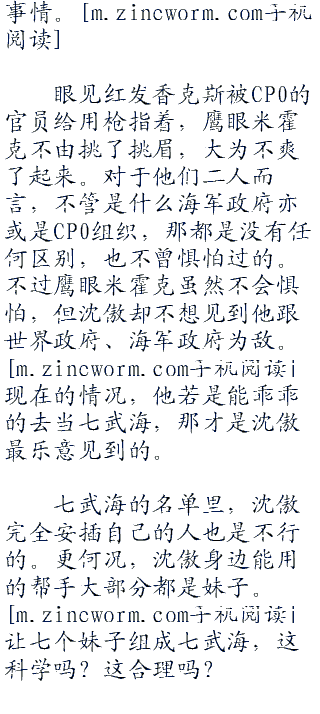 事情。[m.zincworm.com手机
阅读]
眼见红发香克斯被CP0的
官员给用枪指着，鹰眼米霍
克不由挑了挑眉，大为不爽
了起来。对于他们二人而
言，不管是什么海军政府亦
或是CP0组织，那都是没有任
何区别，也不曾惧怕过的。
不过鹰眼米霍克虽然不会惧
怕，但沈傲却不想见到他跟
世界政府、海军政府为敌。
[m.zincworm.com手机阅读]
现在的情况，他若是能乖乖
的去当七武海，那才是沈傲
最乐意见到的。
七武海的名单里，沈傲
完全安插自己的人也是不行
的。更何况，沈傲身边能用
的帮手大部分都是妹子。
[m.zincworm.com手机阅读]
让七个妹子组成七武海，这
科学吗？这合理吗？